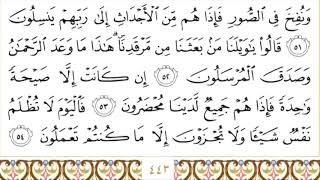 وَنُفِخَ فِي ٱلصُّورِ فَإِذَا هُم مِّنَ ٱلْأَجْدَاثِ إِلَىٰ رَبِّهِمْ يَنسِلُونَ
٥١ قَالُوا۟ يَـٰوَيْلَنَا مَنۢ بَعَثَنَا مِن مَّرْقَدِنَا ۗ هَـٰذَا مَا وَعَدَ ٱلرَّحْمَـٰنُ
وَصَدَقَ ٱلْمُرْسَلُونَ ٥٢ إِن كَانَتْ إِلَّا صَيْحَةً
وَٰحِدَةً فَإِذَا هُمْ جَمِيعٌ لَّدَيْنَا مُحْضَرُونَ ٥٣ فَٱلْيَوْمَ لَا تُظْلَمُ
نَفْسٌ شَيْـًٔا وَلَا تُجْزَوْنَ إِلَّا مَا كُنتُمْ تَعْمَلُونَ ٥٤
٤٤٣